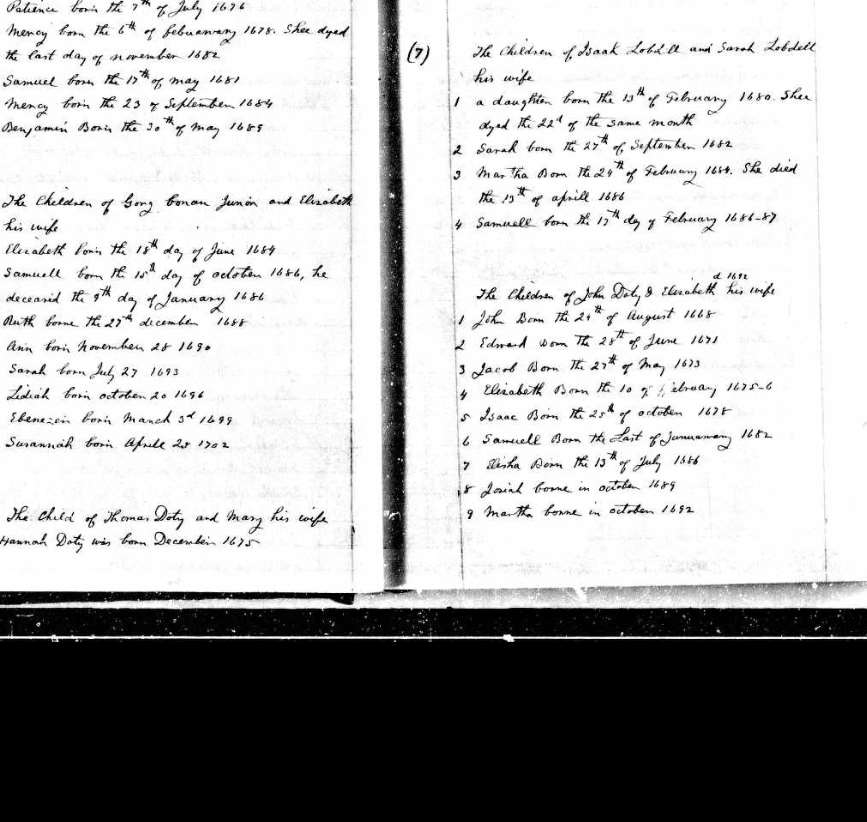 Patience born the 7th of July 1676
Mercy born the 6th of februarary 1678. Shee dyed
the last day of november 1682
Samuel born the 17th of may 1681
mercy born the 23 of September 1684
Benjamin Born the 30th of may 1689
The Children of Gorg bonau Junior and Elisabeth
his wife
Elisabeth born the 18th day of June 1684
Samuell born the 15th day of october 1686, he
deceasid the 9th day of January 1686
Ruth borne the 27th december 1688
Ann born November 28 1690
Sarah born July 27 1693
Lidiah born october 20 1696
Ebenezer born March 3d 1699
Susannah born Aprill 28 1702
The Child of Thomas Doty and Mary his wife
Hannah Doty was born December 1675
(7)
The Children of Isaak Lobdell and Sarah Lobdell
his wife
1 a daughter born the 13th of February 1680. Shee
dyed the 22d of the same month
2 Sarah born the 27th of September 1682
3 Martha Born the 24th of February 1684. She died
the 13th of aprill 1686
4 Samuell born the 17th day of February 1686-87
d 1692
The Children of John Doty & Elisabeth his wife
1 John Born the 24th of August 1668
2 Edward Born The 28th of June 1671
3 Jacob Born the 27th of May 1673
4 Elisabeth Born the 10 of February 1675-6
5 Isaac Born the 25th of october 1678
6 Samuell Born the Last of Januarary 1682
7 Elisha Born the 13th of July 1686
8 Josiah borne in october 1689
9 Martha borne in october 1692